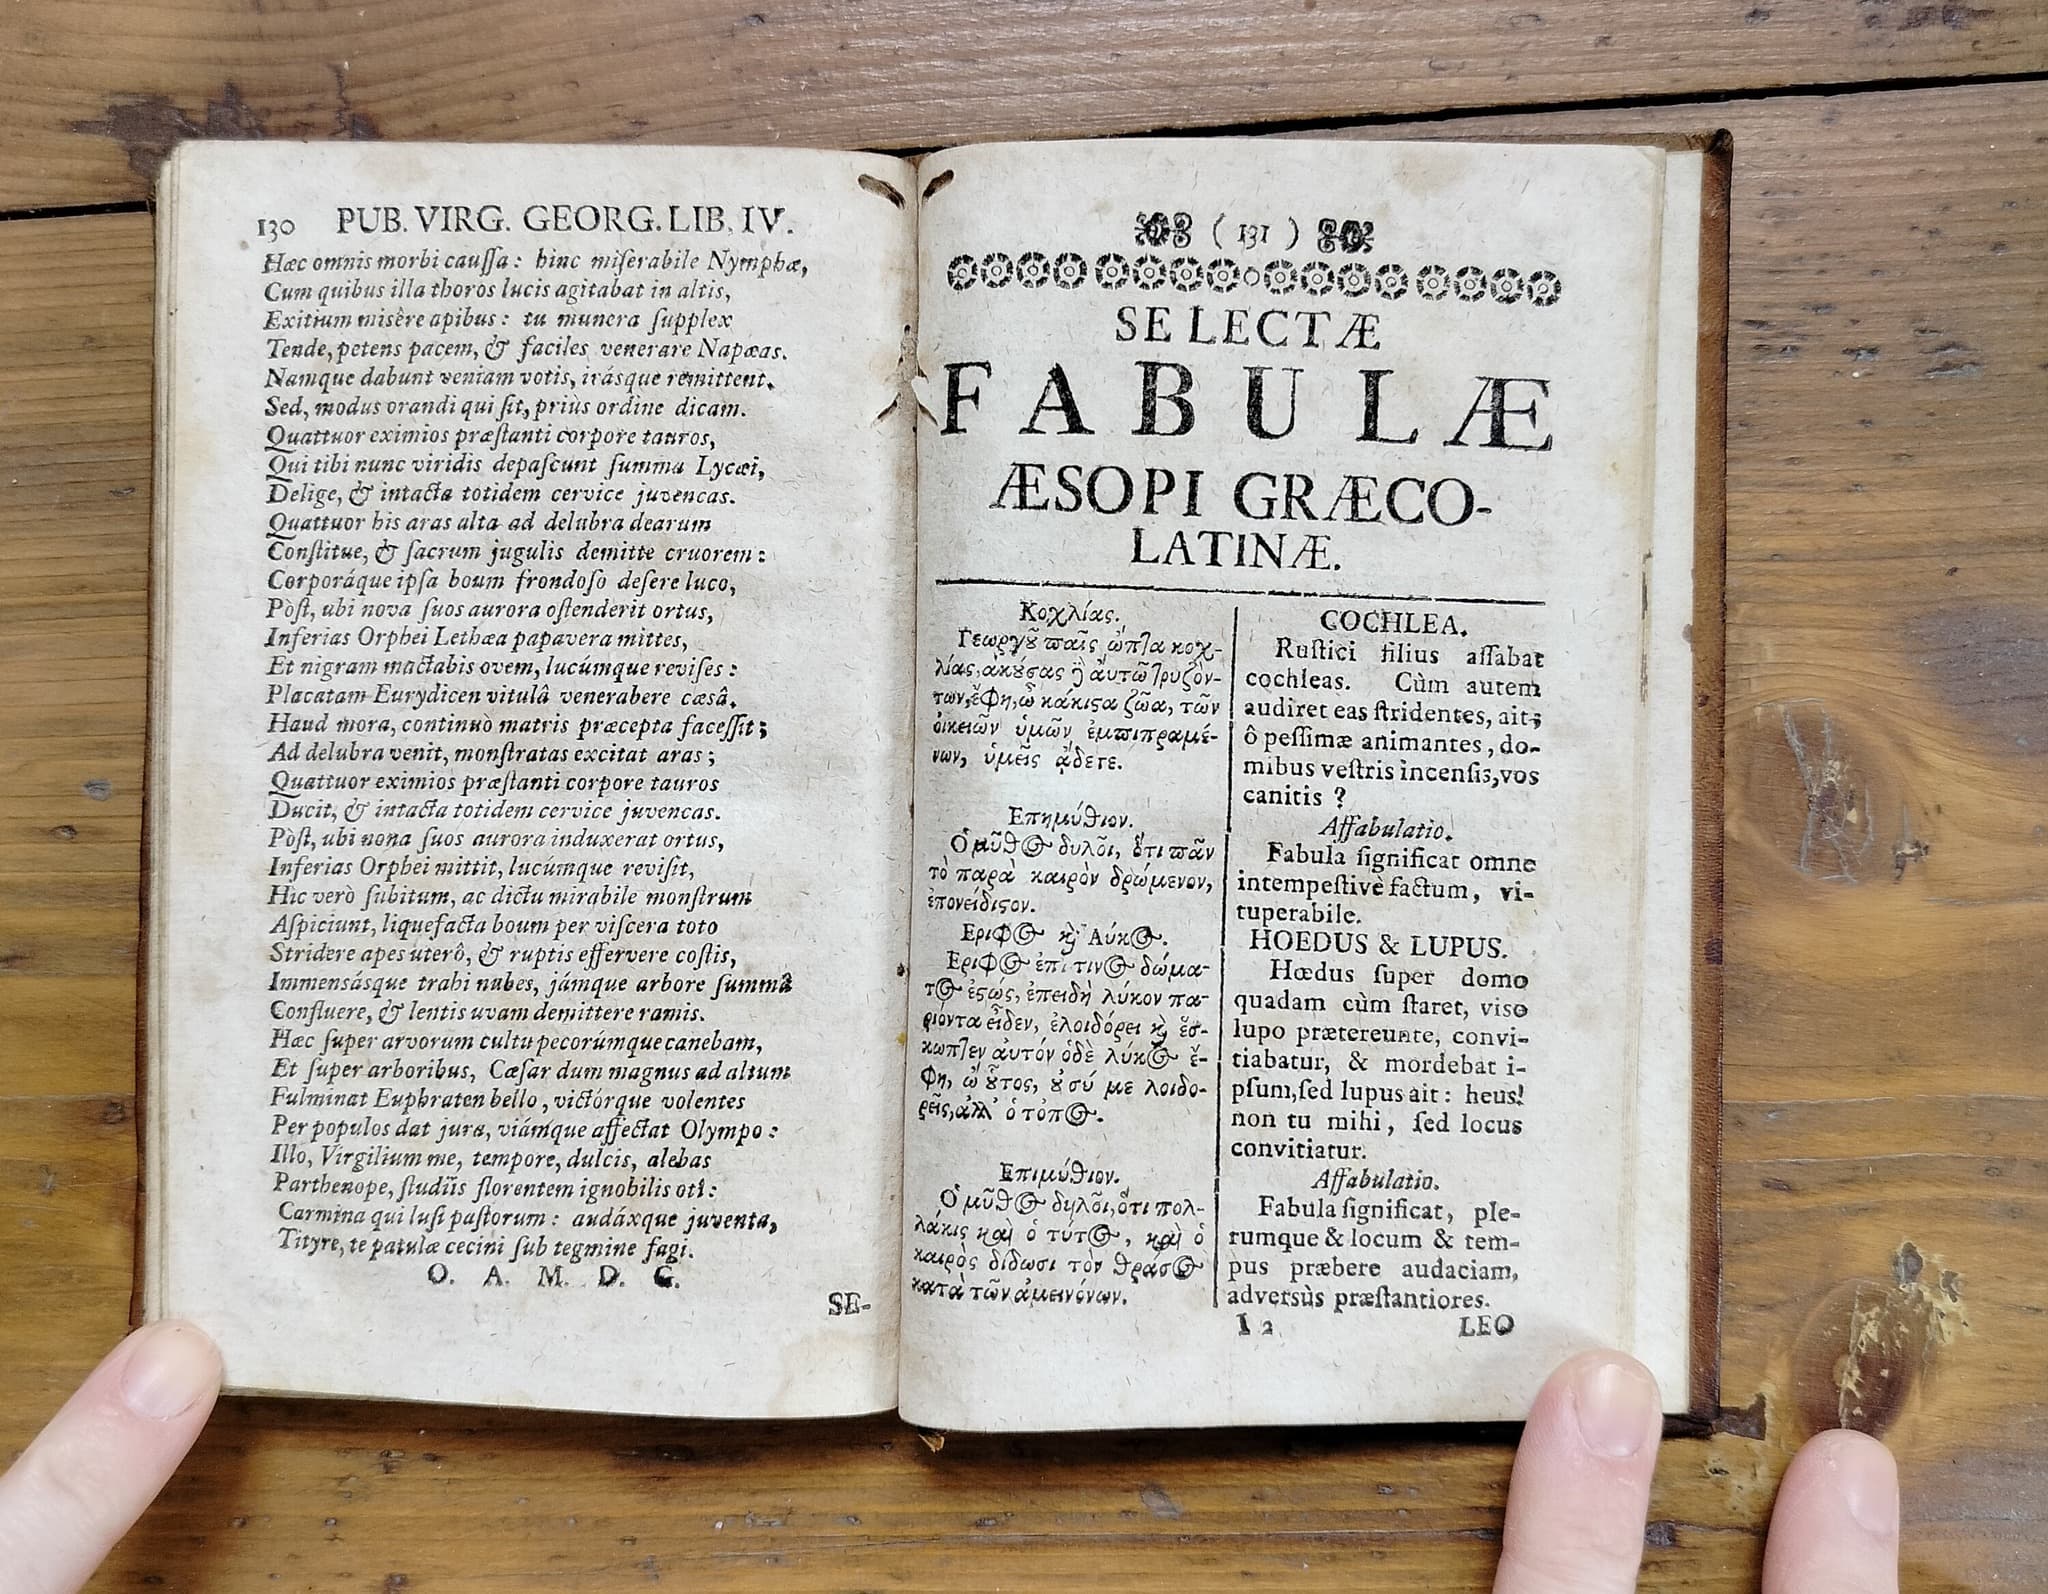 130 PUB. VIRG. GEORG. LIB. IV.
Hæc omnis morbi caussa: hinc miserabile Nymphæ,
Cum quibus illa thoros lucis agitabat in altis,
Exitium misêre apibus: tu munera supplex
Tende, petens pacem, & faciles venerare Napæas.
Namque dabunt veniam votis, irásque remittent.
Sed, modus orandi qui sit, priùs ordine dicam.
Quattuor eximios præstanti corpore tauros,
Qui tibi nunc viridis depascunt summa Lycæi,
Delige, & intacta totidem cervice juvencas.
Quattuor his aras alta ad delubra dearum
Constitue, & sacrum jugulis demitte cruorem:
Corporáque ipsa boum frondoso desere luco,
Pòst, ubi nova suos aurora ostenderit ortus,
Inferias Orphei Lethæa papavera mittes,
Et nigram mactabis ovem, lucúmque revises:
Placatam Eurydicen vitulâ venerabere cæsâ.
Haud mora, continuò matris præcepta facessit;
Ad delubra venit, monstratas excitat aras;
Quattuor eximios præstanti corpore tauros
Ducit, & intacta totidem cervice juvencas.
Pòst, ubi nona suos aurora induxerat ortus,
Inferias Orphei mittit, lucúmque revisit,
Hic verò subitum, ac dictu mirabile monstrum
Aspiciunt, liquefacta boum per viscera toto
Stridere apes uterô, & ruptis effervere costis,
Immensásque trahi nubes, jámque arbore summâ
Confluere, & lentis uvam demittere ramis.
Hæc super arvorum cultu pecorúmque canebam,
Et super arboribus, Cæsar dum magnus ad altum
Fulminat Euphraten bello, victórque volentes
Per populos dat jura, viámque affectat Olympo:
Illo, Virgilium me, tempore, dulcis, alebas
Parthenope, studiis florentem ignobilis otî:
Carmina qui lusi pastorum: audáxque juventa,
Tityre, te patulæ cecini sub tegmine fagi.
O. A. M. D. G.
SE-
( 131 )
SELECTÆ
FABULÆ
ÆSOPI GRÆCO-
LATINÆ.
Κοχλίας.
Γεωργοῦ παῖς ὤπτα κοχ-
λίας, ἀκούσας δὲ αὐτῶ τρυζόν-
των, ἔφη, ὦ κάκιστα ζῶα, τῶν
οἰκειῶν ὑμῶν ἐμπιπραμέ-
νων, ὑμεῖς ᾄδετε.
Επημύθιον.
Ὁ μῦθος δυλοῖ, ὅτι πᾶν
τὸ παρὰ καιρὸν δρώμενον,
ἐπονείδιστον.
Εριφος καὶ Λύκος.
Εριφος ἐπί τινος δώμα-
τος ἑστώς, ἐπειδὴ λύκον πα-
ριόντα εἶδεν, ἐλοιδόρει καὶ ἔσ-
κωπτεν αυτόν ὁδὲ λύκος ἔ-
φη, ὦ οὗτος, οὐ σύ με λοιδο-
ρεῖς, ἀλλ' ὁ τόπος.
Επιμύθιον.
Ὁ μῦθος δηλοῖ, ὅτι πολ-
λάκις καὶ ὁ τύτος, καὶ ὁ
καιρὸς δίδωσι τὸν θράσος
κατὰ τῶν ἀμεινόνων.
COCHLEA.
Rustici filius assabat
cochleas. Cùm autem
audiret eas stridentes, ait;
ô pessimæ animantes, do-
mibus vestris incensis, vos
canitis ?
Affabulatio.
Fabula significat omne
intempestivè factum, vi-
tuperabile.
HOEDUS & LUPUS.
Hœdus super domo
quadam cùm staret, viso
lupo prætereunte, convi-
tiabatur, & mordebat i-
psum, sed lupus ait: heus!
non tu mihi, sed locus
convitiatur.
Affabulatio.
Fabula significat, ple-
rumque & locum & tem-
pus præbere audaciam,
adversùs præstantiores.
I 2 LEO